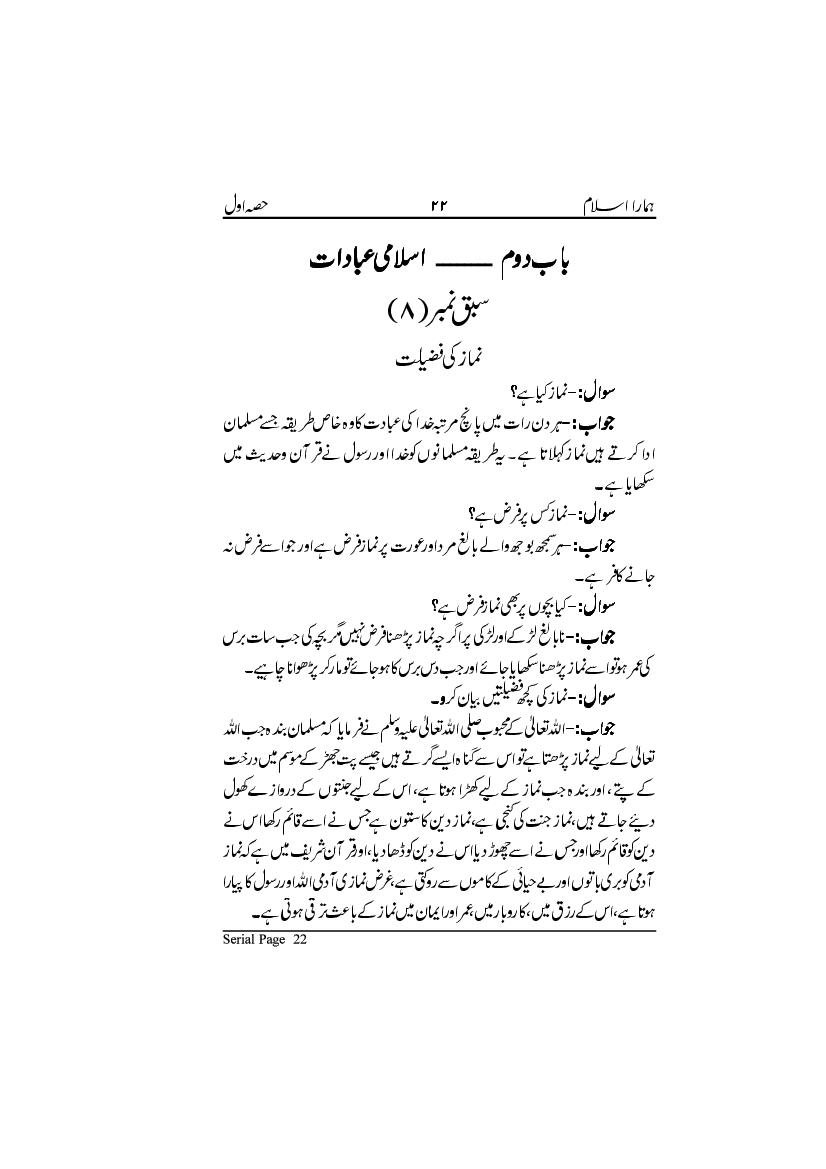 ہمارا اسلام ۲۲ حصہ اول
باب دوم ــــــ اسلامی عبادات
سبق نمبر (۸)
نماز کی فضیلت
سوال:- نماز کیا ہے؟
جواب:- ہر دن رات میں پانچ مرتبہ خدا کی عبادت کا وہ خاص طریقہ جسے مسلمان
ادا کرتے ہیں نماز کہلاتا ہے۔ یہ طریقہ مسلمانوں کو خدا اور رسول نے قرآن وحدیث میں
سکھایا ہے۔
سوال:- نماز کس پر فرض ہے؟
جواب:- ہر سمجھ بوجھ والے بالغ مرد اور عورت پر نماز فرض ہے اور جو اسے فرض نہ
جانے کافر ہے۔
سوال:- کیا بچوں پر بھی نماز فرض ہے؟
جواب:- نابالغ لڑکے اور لڑکی پر اگرچہ نماز پڑھنا فرض نہیں مگر بچہ کی جب سات برس
کی عمر ہو تو اسے نماز پڑھنا سکھایا جائے اور جب دس برس کا ہو جائے تو مار کر پڑھوانا چاہیے۔
سوال:- نماز کی کچھ فضیلتیں بیان کرو۔
جواب:- اللہ تعالیٰ کے محبوب صلی اللہ تعالیٰ علیہ وسلم نے فرمایا کہ مسلمان بندہ جب اللہ
تعالیٰ کے لیے نماز پڑھتا ہے تو اس سے گناہ ایسے گرتے ہیں جیسے پت جھڑ کے موسم میں درخت
کے پتے، اور بندہ جب نماز کے لیے کھڑا ہوتا ہے، اس کے لیے جنتوں کے دروازے کھول
دیئے جاتے ہیں، نماز جنت کی کنجی ہے، نماز دین کا ستون ہے جس نے اسے قائم رکھا اس نے
دین کو قائم رکھا اور جس نے اسے چھوڑ دیا اس نے دین کو ڈھا دیا، اور قرآن شریف میں ہے کہ نماز
آدمی کو بری باتوں اور بے حیائی کے کاموں سے روکتی ہے، غرض نمازی آدمی اللہ اور رسول کا پیارا
ہوتا ہے، اس کے رزق میں، کاروبار میں، عمر اور ایمان میں نماز کے باعث ترقی ہوتی ہے۔
Serial Page 22